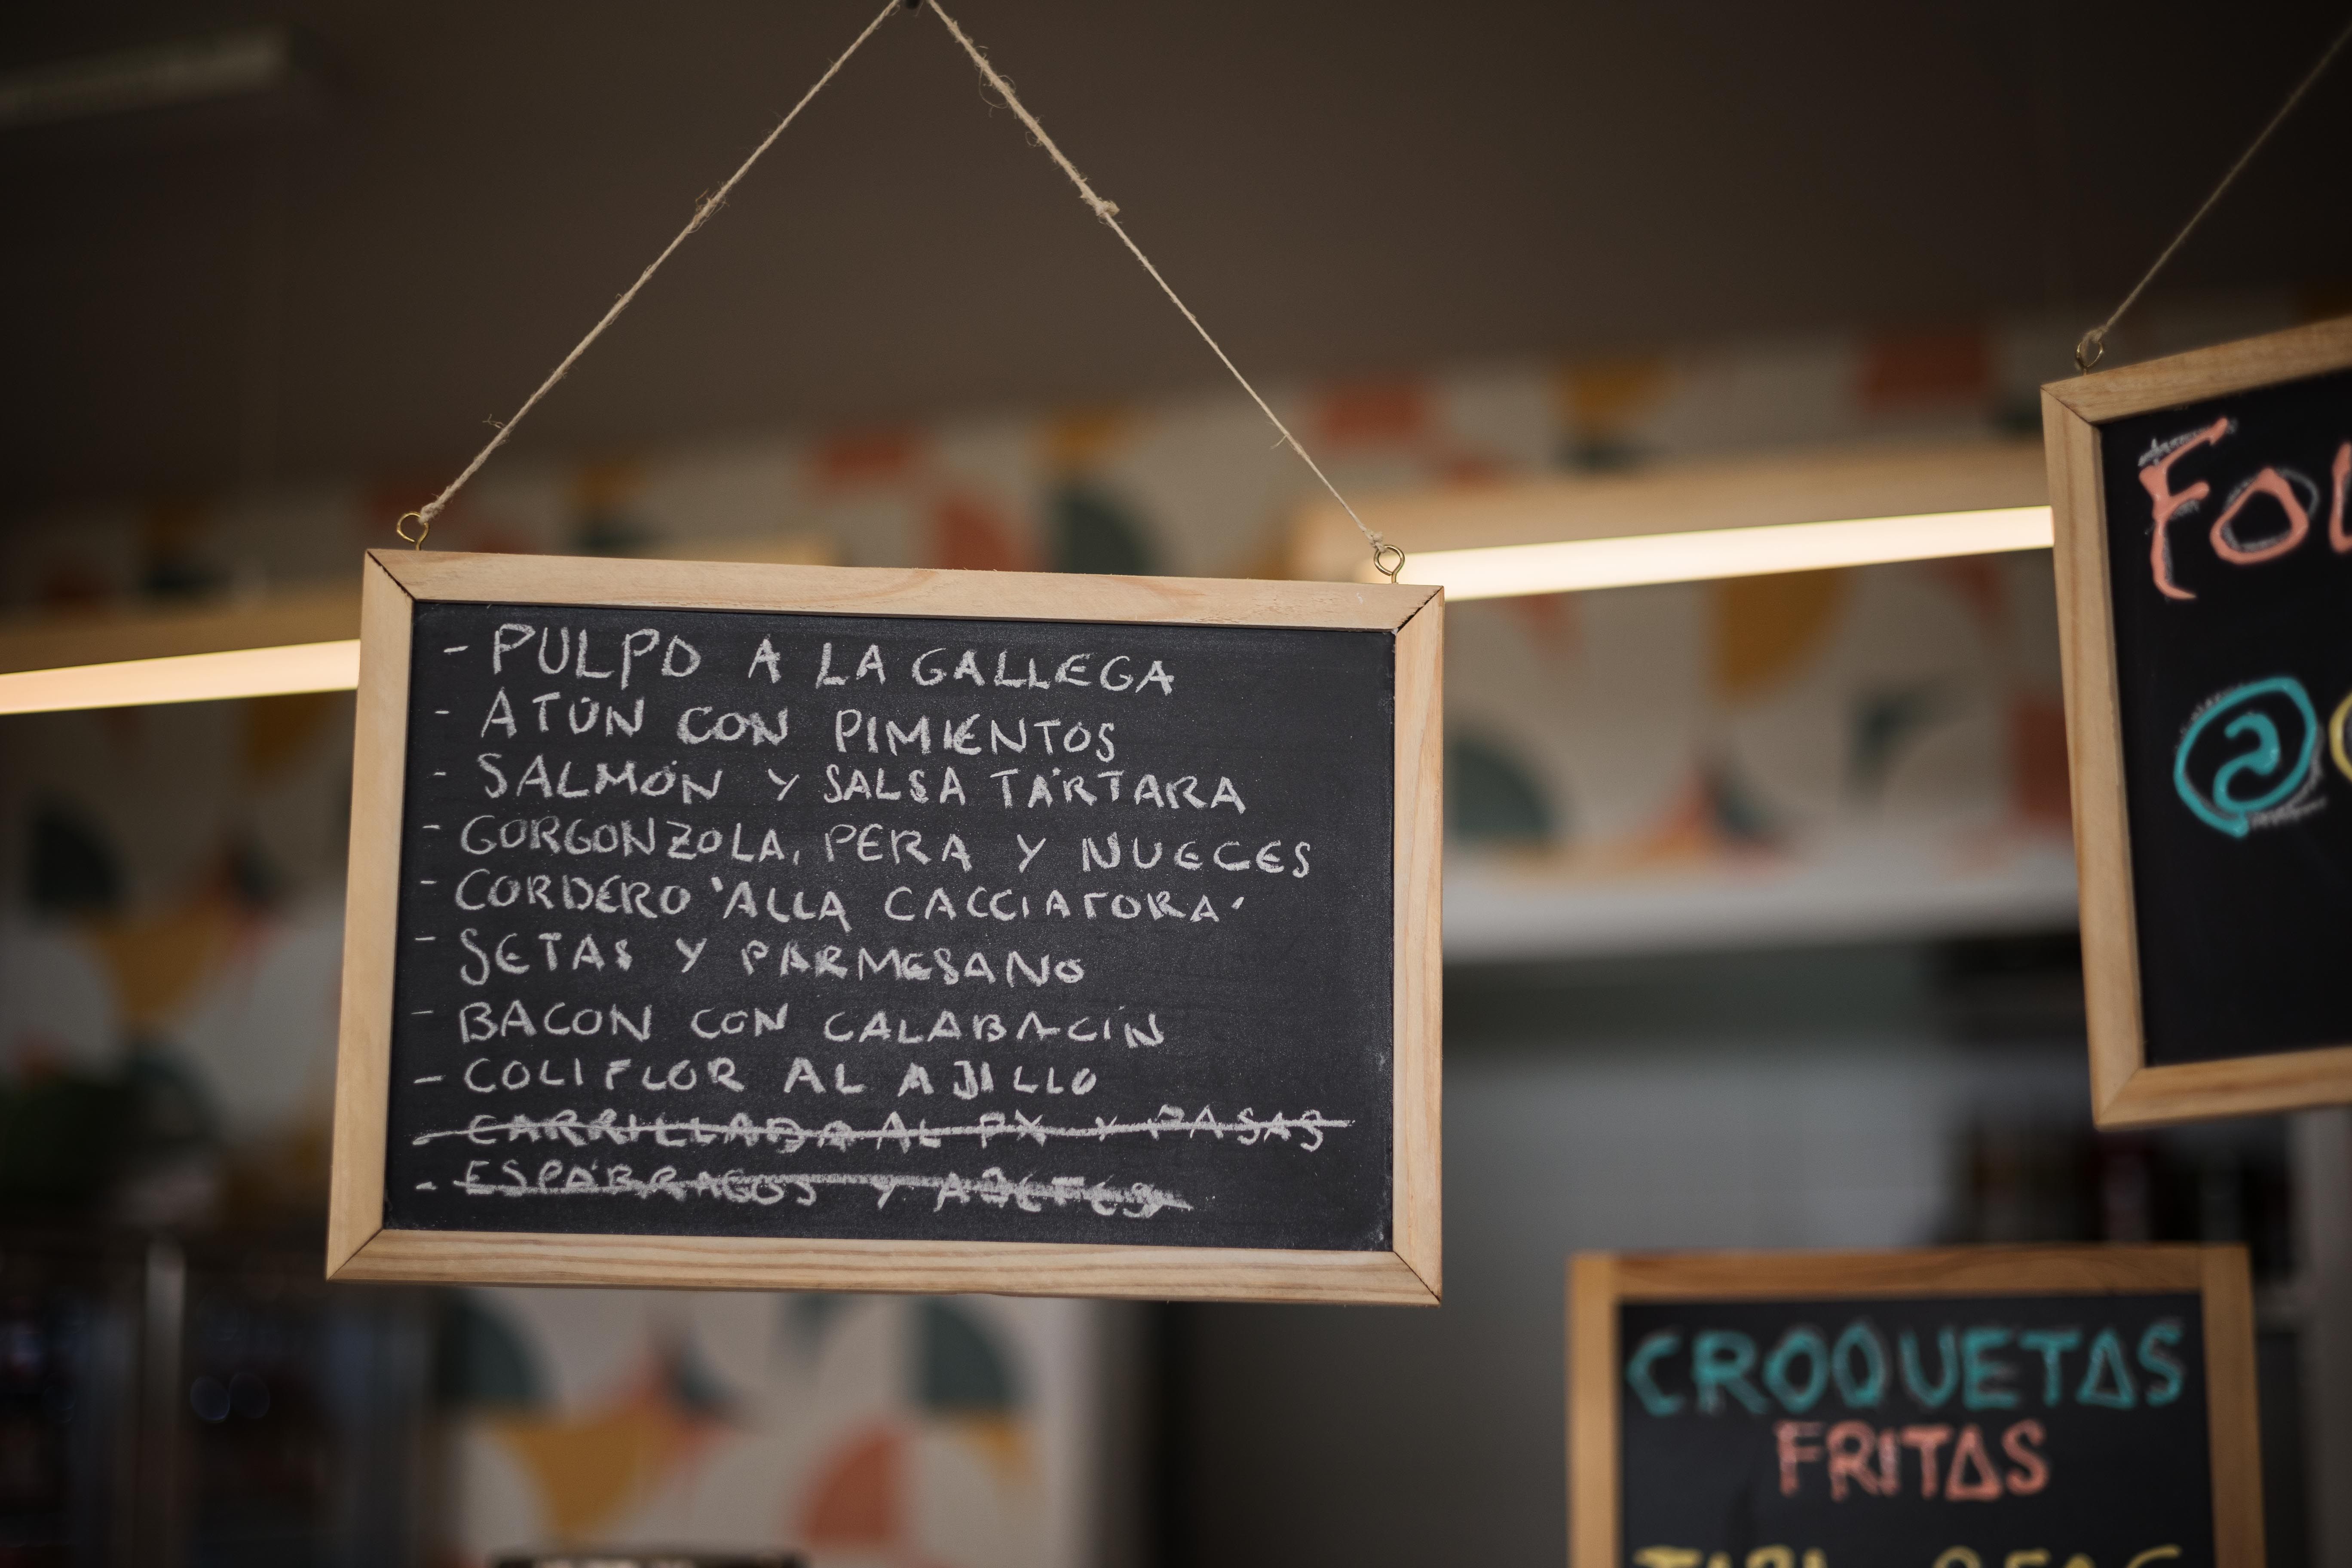 - PULPO A LA GALLEGA
- ATÚN CON PIMIENTOS
- SALMÓN Y SALSA TÁRTARA
- GORGONZOLA, PERA Y NUECES
- CORDERO 'ALLA CACCIATORA'
- SETAS Y PARMESANO
- BACON CON CALABACÍN
- COLIFLOR AL AJILLO
- CARRILLADA AL PX Y PASAS
- ESPÁRRAGOS Y
CROQUETAS
FRITAS